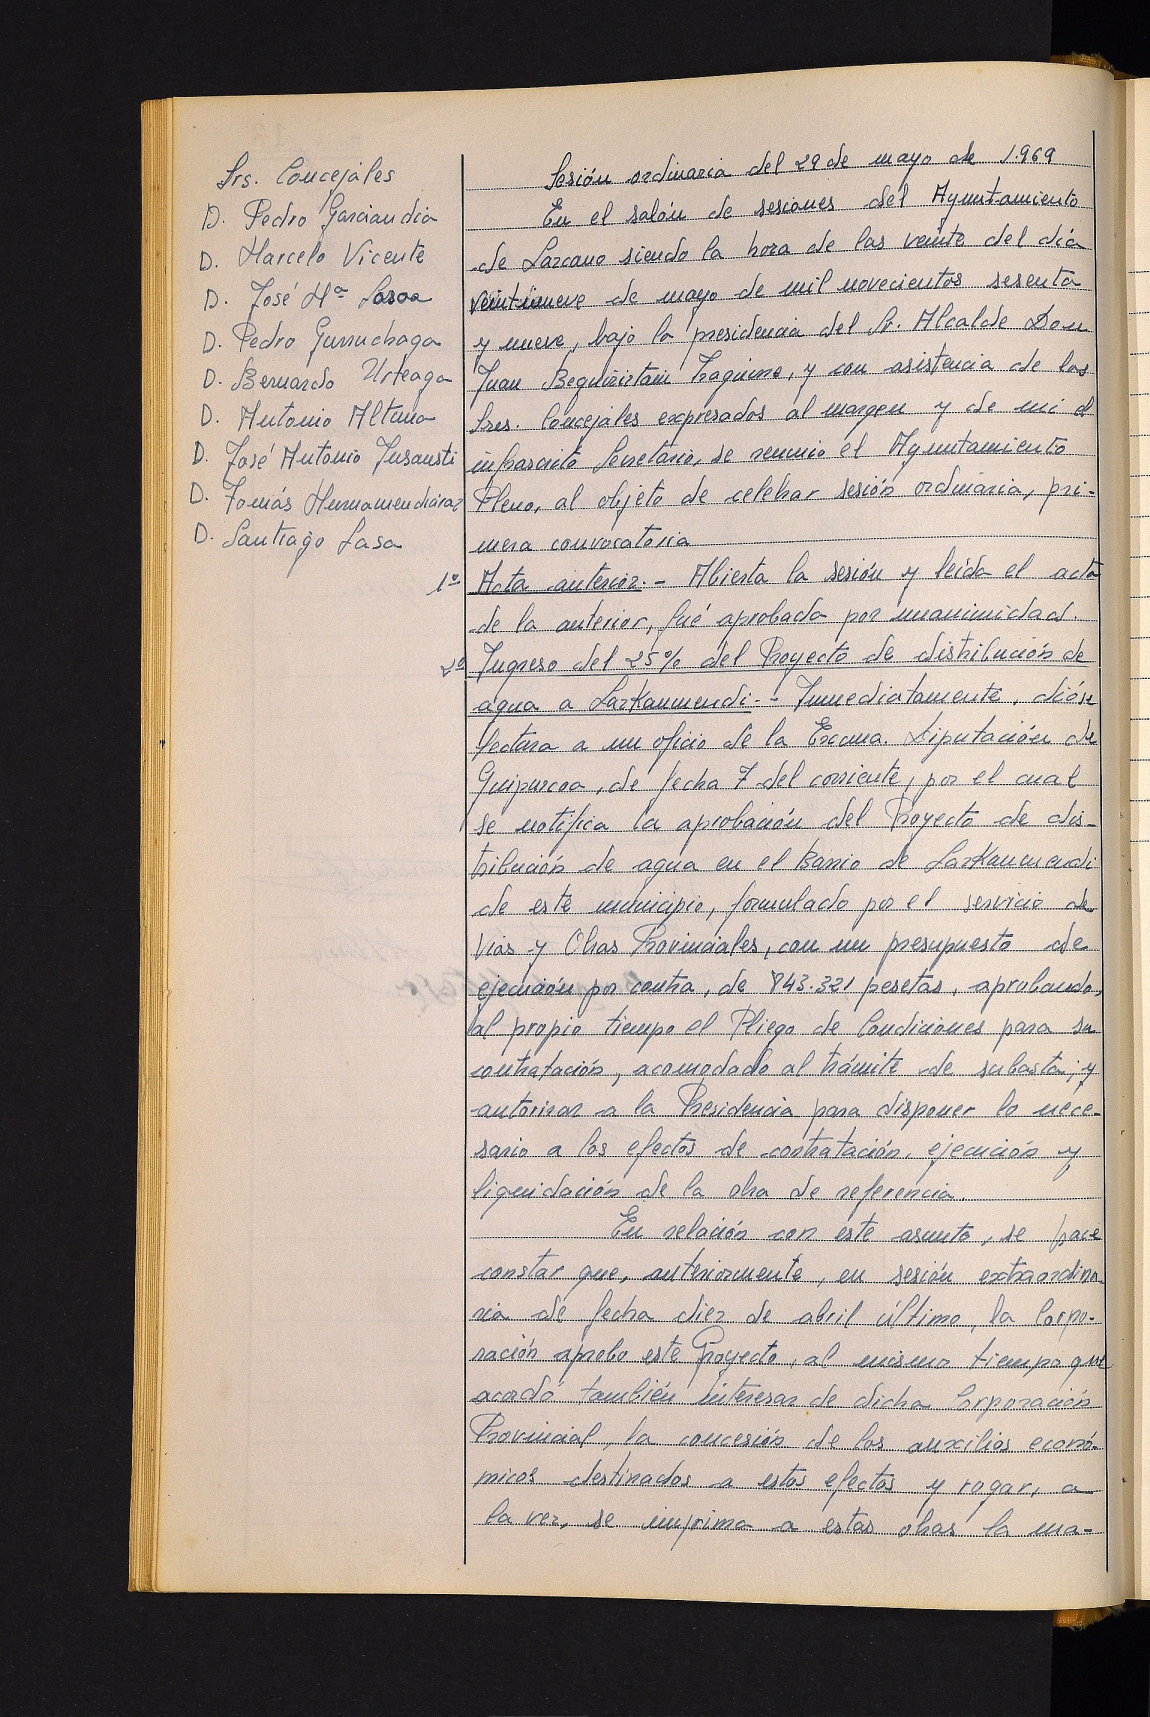 Srs. Concejales
D. Pedro Garciandia
D. Marcelo Vicente
D. José Mª Lasa
D. Pedro Gurruchaga
D. Bernardo Urteaga
D. Antonio Altuna
D. José Antonio Insausti
D. Tomás
D. Santiago Lasa
Sesión ordinaria del 29 de mayo de 1.969
En el salón de sesiones del Ayuntamiento
de Lazcano siendo la hora de las veinte del día
veintinueve de mayo de mil novecientos sesenta
y nueve, bajo la presidencia del Sr. Alcalde Don
Juan y con asistencia de los
Sres. Concejales expresados al margen y de mi el
infrascrito Secretario, se reunió el Ayuntamiento
Pleno, al objeto de celebrar sesión ordinaria, pri-
mera convocatoria
1º Acta anterior.- Abierta la sesión y leida el acta
de la anterior, fué aprobada por unanimidad.
2º Ingreso del 25% del Proyecto de distribución de
agua a Lazkaumendi.- Inmediatamente, dióse
lectura a un oficio de la Excma. Diputación de
Guipuzcoa, de fecha 7 del corriente, por el cual
se notifica la aprobación del Proyecto de dis-
tribución de agua en el Barrio de Lazkaumendi
de este municipio, formulado por el servicio de
Vias y Obras Provinciales, con un presupuesto de
ejecución por contra, de 843.321 pesetas, aprobando,
al propio tiempo el Pliego de Condiciones para su
contratación, acomodado al trámite de subasta; y
autorizar a la Presidencia para disponer lo nece-
sario a los efectos de contratación, ejecución y
liquidación de la obra de referencia.
En relación con este asunto, se hace
constar que, anteriormente, en sesión extraordina-
ria de fecha diez de abril último, la Corpo-
ración aprobo este Proyecto, al mismo tiempo que
acordó también interesar de dicha Corporación
Provincial, la concesión de los auxilios econó-
micos destinados a estos efectos y rogar, a
la vez, se imprima a estas obras la ma-